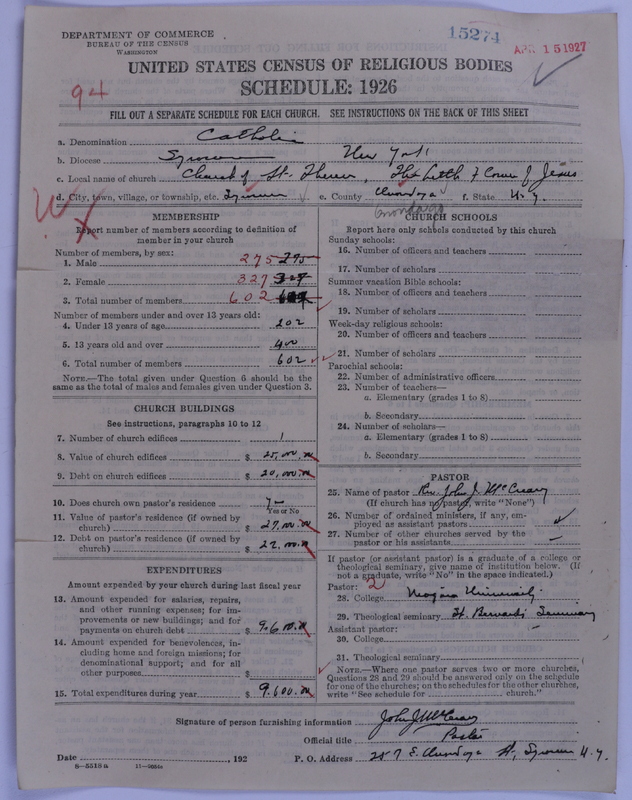 DEPARTMENT OF COMMERCE
BUREAU OF THE CENSUS
WASHINGTON
15274
APR 15 1927
UNITED STATES CENSUS OF RELIGIOUS BODIES
SCHEDULE: 1926
94
FILL OUT A SEPARATE SCHEDULE FOR EACH CHURCH. SEE INSTRUCTIONS ON THE BACK OF THIS SHEET
a. Denomination Catholic
b. Diocese Syracuse New York
c. Local name of church Church of St. Therese, The Little Flower of Jesus
d. City, town, village, or township, etc. Syracuse e. County Onondaga f. State N.Y.
Onondaga
MEMBERSHIP
Report number of members according to definition of
member in your church
Number of members, by sex:
1. Male 275 275
2. Female 327 327
3. Total number of members 602
Number of members under and over 13 years old:
4. Under 13 years of age 202
5. 13 years old and over 400
6. Total number of members 602
NOTE.—The total given under Question 6 should be
same as the total of males and females given under Question 3.
CHURCH BUILDINGS
See instructions, paragraphs 10 to 12
7. Number of church edifices 1
8. Value of church edifices $ 25,000.00
9. Debt on church edifices $ 20,000.00
10. Does church own pastor's residence Yes
Yes or No
11. Value of pastor's residence (if owned by
church) $ 27,000.00
12. Debt on pastor's residence (if owned by
church) $ 22,000.00
EXPENDITURES
Amount expended by your church during last fiscal year
13. Amount expended for salaries, repairs,
and other running expenses; for im-
provements or new buildings; and for
payments on church debt $ 9.600.00
14. Amount expended for benevolences, in-
cluding home and foreign missions; for
denominational support; and for all
other purposes $
15. Total expenditures during year $ 9.600.00
CHURCH SCHOOLS
Report here only schools conducted by this church
Sunday schools:
16. Number of officers and teachers
17. Number of scholars
Summer vacation Bible schools:
18. Number of officers and teachers
19. Number of scholars
Week-day religious schools:
20. Number of officers and teachers
21. Number of scholars
Parochial schools:
22. Number of administrative officers
23. Number of teachers—
a. Elementary (grades 1 to 8)
b. Secondary
24. Number of scholars—
a. Elementary (grades 1 to 8)
b. Secondary
PASTOR
25. Name of pastor Rev. John J. McCreary
(If church has no pastor, write "None")
26. Number of ordained ministers, if any, em-
ployed as assistant pastors
27. Number of other churches served by the
pastor or his assistants —
If pastor (or assistant pastor) is a graduate of a college or
theological seminary, give name of institution below. (If
not a graduate, write "No" in the space indicated.)
Pastor: 2
28. College Niagara University
29. Theological seminary St. Bernard's Seminary
Assistant pastor:
30. College
31. Theological seminary
NOTE.—Where one pastor serves two or more churches,
Questions 28 and 29 should be answered only on the schedule
for one of the churches; on the schedules for the other churches,
write "See schedule for church."
Signature of person furnishing information John J. McCreary
Official title Pastor
Date , 192 P. O. Address 287 E. Onondaga St, Syracuse N.Y.
8—5518a